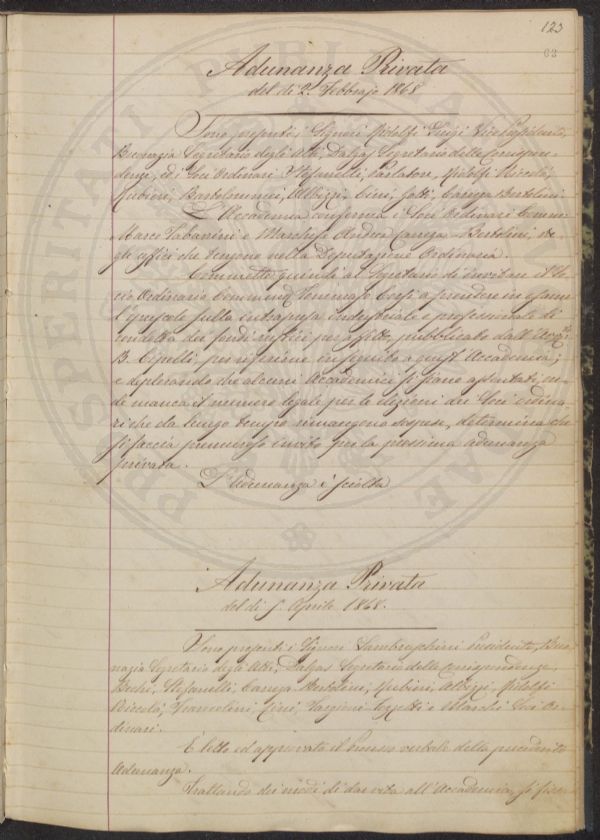 123
63
Adunanza Privata
del dì 2. Febbrajo 1868
Sono presenti i Signori Ridolfi Luigi Vice Presidente,
Buonazia Segretario degli Atti, Dalgas Segretario delle Corrispon-
denze, ed i Soci Ordinari Stefanelli, Parlatore, Ridolfi Niccolò,
Rubini, Bartolommei, Albizzi, Cini, Carega Bertolini.
L'Accademia conferma i Soci Ordinari Comm.
Marco Tabarrini e Marchese Andrea Carega Bertolini, ne-
gli uffici che tengono nella Deputazione Ordinaria.
Commette quindi al Segretario di invitare il So-
cio Ordinario Commend. Tommaso Corsi a prendere in esame
l'opuscolo sulla intrapresa industriale e professionale di
condotta dei fondi rustici per affitto, pubblicato dall'Avv.
B. Cipelli, per riferirne in seguito a quest'Accademia;
e deplorando che alcuni Accademici si siano assentati, on-
de manca il numero legale per le elezioni dei Soci ordina-
ri che da lungo tempo rimangono sospese, determina che
si faccia premuroso invito per la prossima adunanza
privata.
L'Adunanza è sciolta
Adunanza Privata
del dì 5. Aprile 1868.
Sono presenti i Signori Lambruschini Presidente, Buo-
nazia Segretario degli Atti, Dalgas Segretario delle Corrispondenze,
Bechi, Stefanelli, Carega Bertolini, Rubini, Albizzi, Ridolfi
Niccolò, Franceschini, Cini, Targioni Tozzetti e Marchi Soci Or-
dinari.
È letto ed approvato il Processo verbale della precedente
Adunanza.
Trattando dei modi di dar vita all'Accademia, si